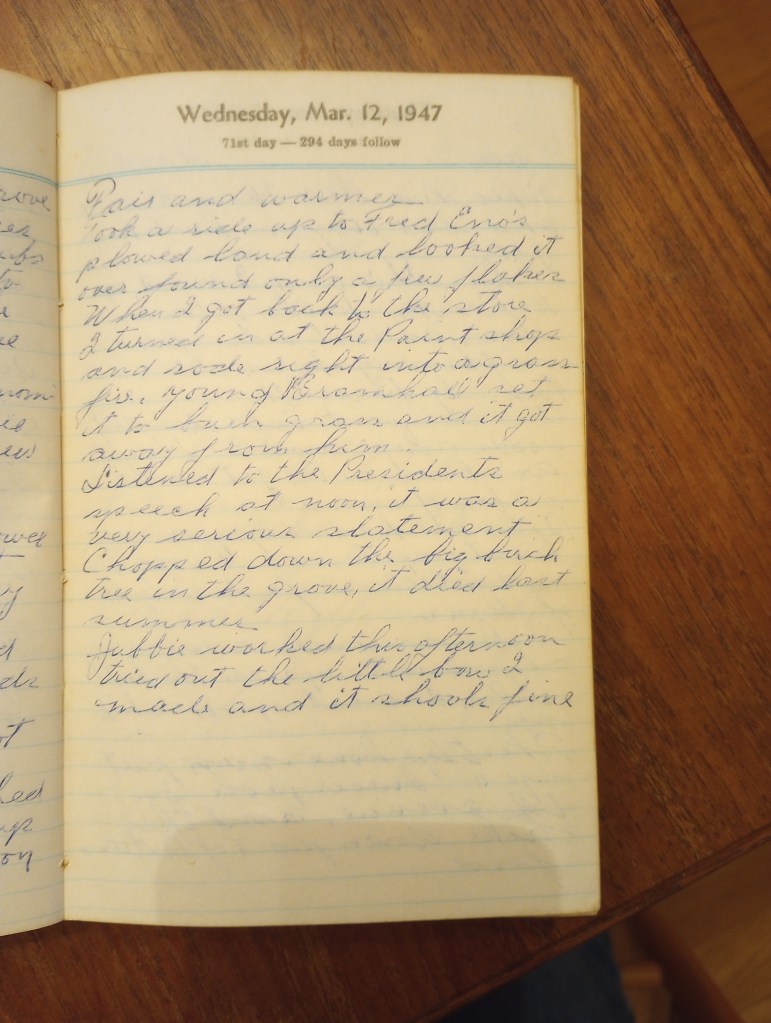 Wednesday, Mar. 12, 1947
71st day — 294 days follow
Fair and warmer
Took a ride up to Fred Eno's
plowed land and looked it
over found only a few flakes
When I got back to the store
I turned in at the Paint shop
and rode right into a grass
fire, young Bramhall set
it to burn grass and it got
away from him.
Listened to the Presidents
speech at noon, it was a
very serious statement
Chopped down the big birch
tree in the grove, it died last
summer
Jubbie worked this afternoon
tried out the little bow I
made and it shoots fine